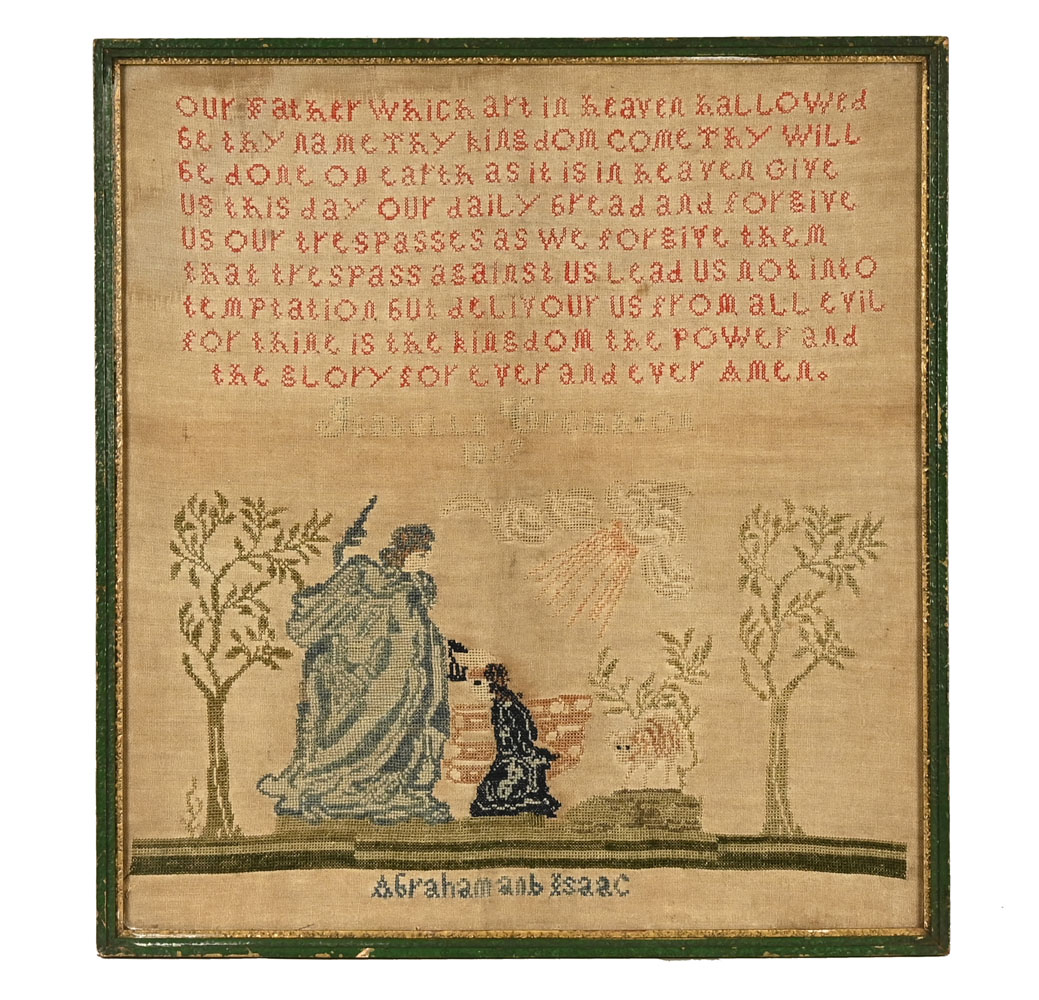 Our Father Which art in heaven haLLOWed
be thy name Thy kingdom come Thy WiLL
be done on earth as it is in heaven Give
Us this day Our daily bread and forgive
Us our trespasses as we forgive them
that trespass against Us Lead Us not into
temptation but deLivour us from aLL eviL
for thine is the kingdom the Power and
the gLory for ever and ever Amen.
Abraham and Isaac